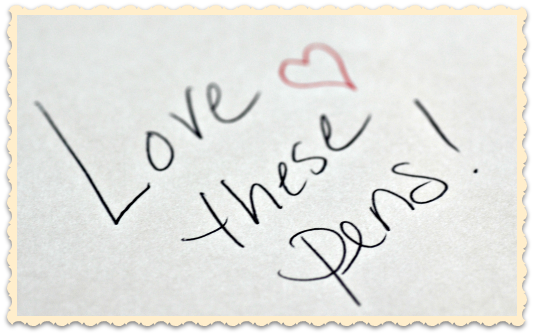 Love
these
pens!